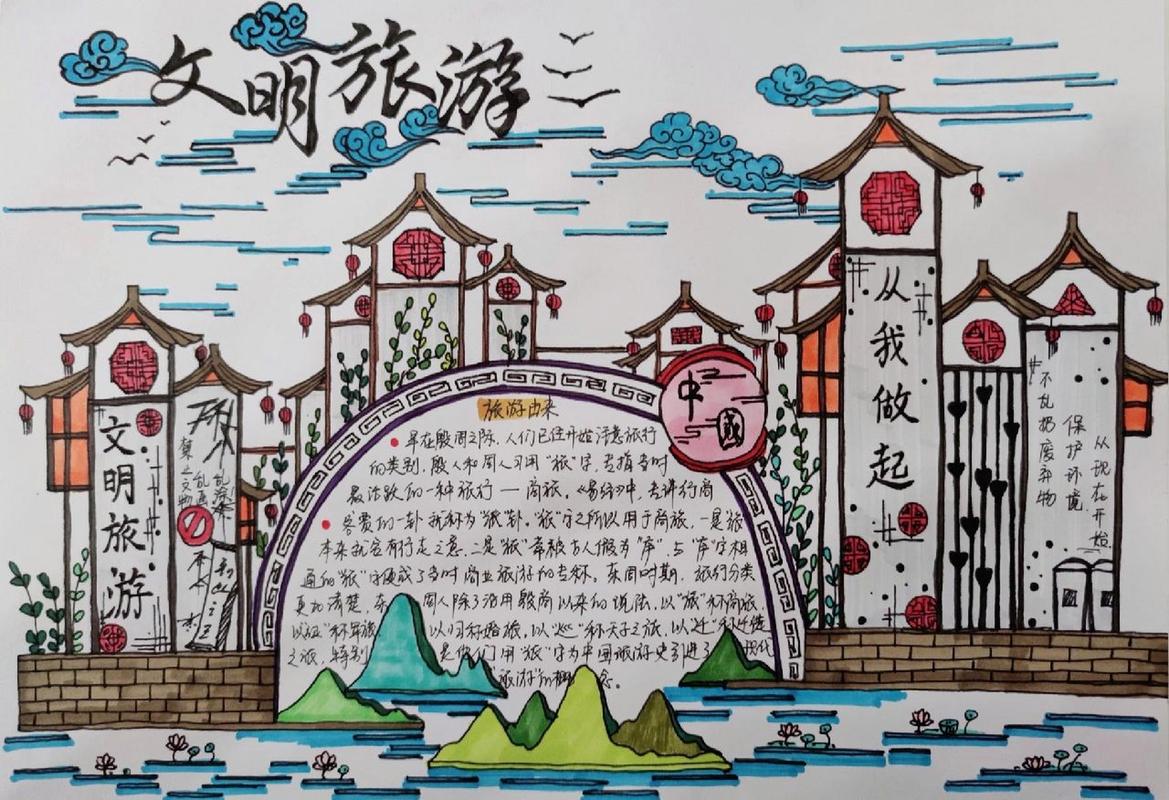 文明旅游
旅游由来
早在殷周之际,人们已经开始注意旅行
的类别,殷人和周人习用“旅”字,专指当时
最活跃的一种旅行——商旅,《易经》中,专讲行商
客贾的一卦 就称为“旅”卦,“旅”字之所以用于商旅,一是“旅”
本来就含有行走之意,二是“旅”常被古人假为“庐”与“庐”字相
通的“旅”字便成了当时商业旅游的专称。东周时期,旅行分类
更加清楚,东 周人除了沿用殷商以来的说法,以“旅”称商旅,
以“征”称军旅, 以归称婚旅,以“巡”称天子之旅,以“迁”称
之旅,特别 是他们用“旅”字为中国旅游史引进了 现代
“旅游”的概 念。
中
国
文明旅游
从我做起
不乱扔废弃物
保护环境
从现在开始